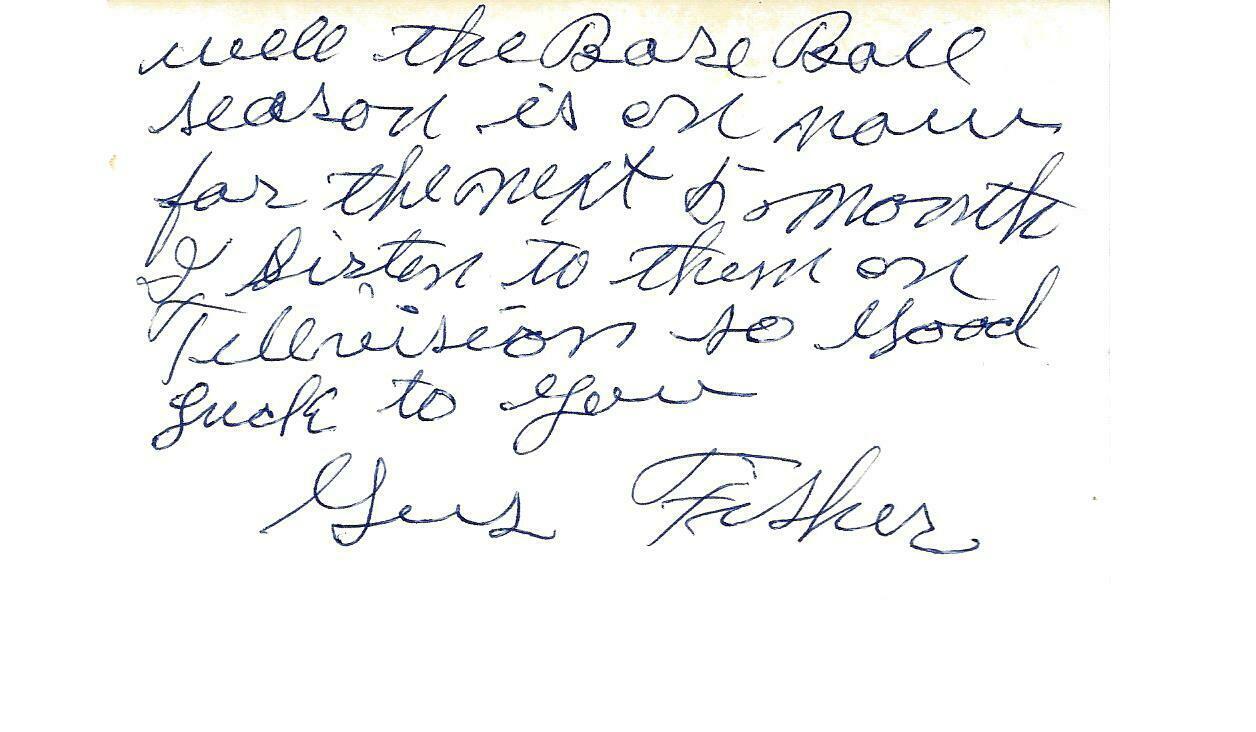 well the Base Ball
season is on now
for the next 5 month
I listen to them on
Television so Good
Luck to you
Gus Fisher